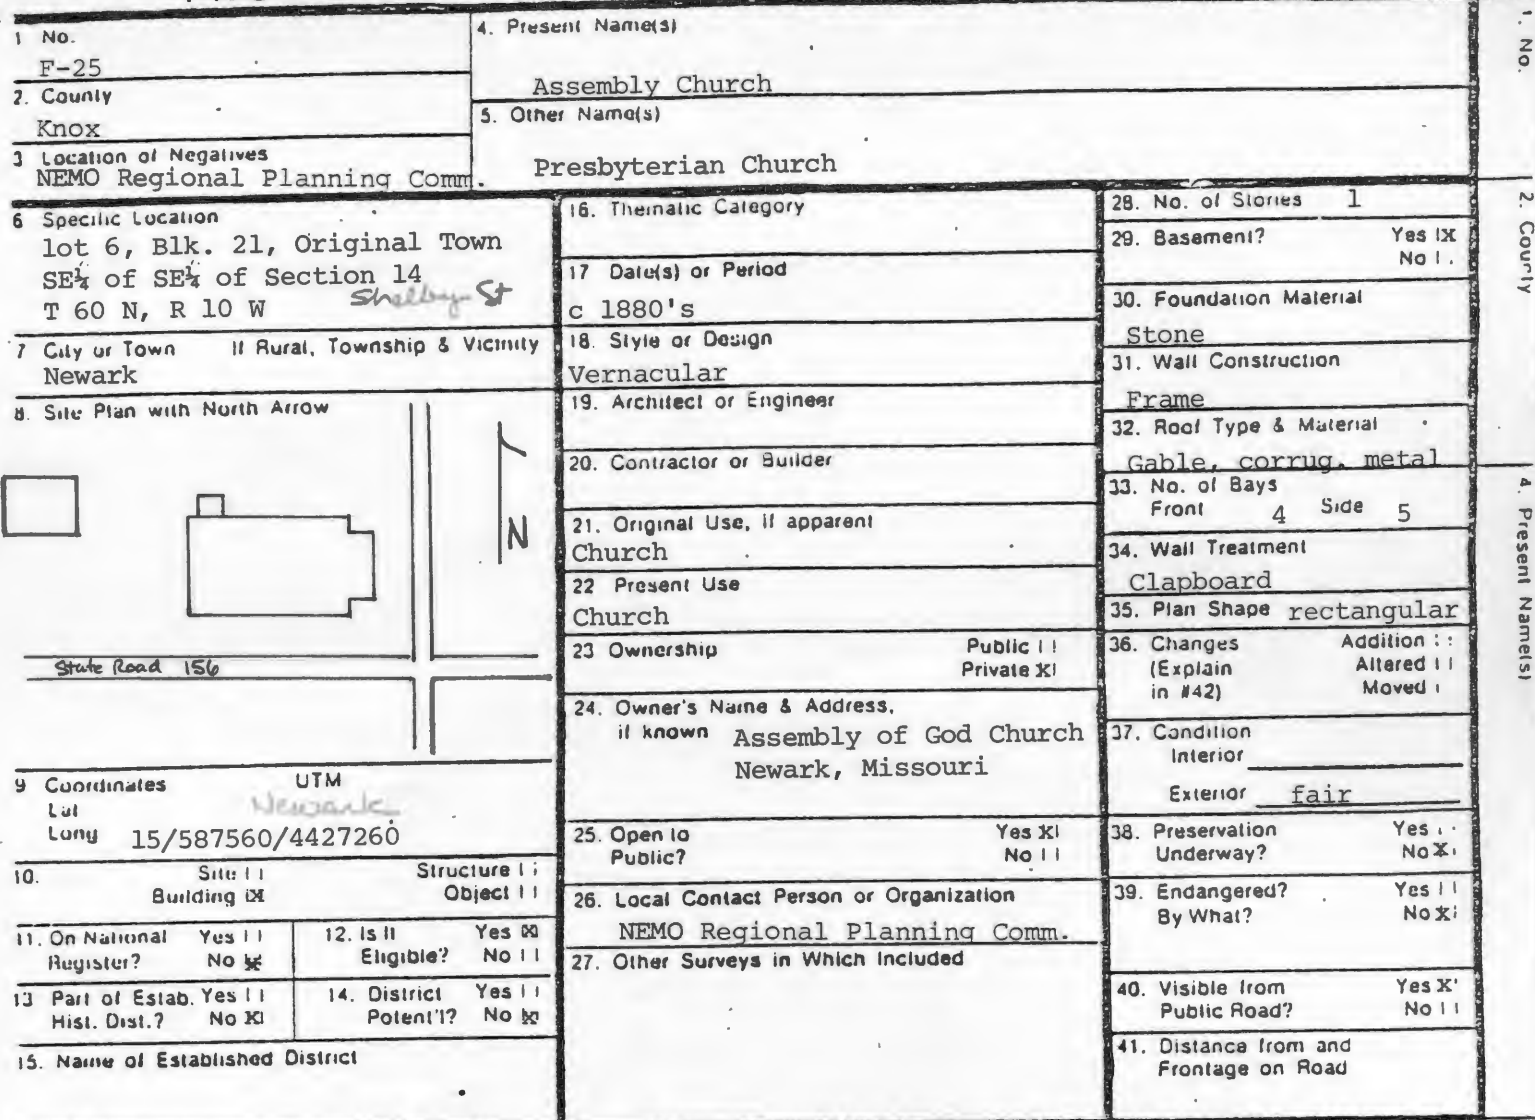 1 No.
F-25
2. County
Knox
3 Location of Negatives
NEMO Regional Planning Comm.
4. Present Name(s)
Assembly Church
5. Other Name(s)
Presbyterian Church
6 Specific Location
lot 6, Blk. 21, Original Town
SE¼ of SE¼ of Section 14
T 60 N, R 10 W
Shelby St
7 City or Town If Rural, Township & Vicinity
Newark
8. Site Plan with North Arrow
N
State Road 156
9 Coordinates UTM
Lat
Newark
Long 15/587560/4427260
10. Site | | Structure | |
Building |X| Object | |
11. On National Yes | |
Register? No |X|
12. Is It Yes |X|
Eligible? No | |
13 Part of Estab. Yes | |
Hist. Dist.? No |X|
14. District Yes | |
Potent'l? No |X|
15. Name of Established District
16. Thematic Category
17 Date(s) or Period
c 1880's
18. Style or Design
Vernacular
19. Architect or Engineer
20. Contractor or Builder
21. Original Use, if apparent
Church
22 Present Use
Church
23 Ownership Public | |
Private X|
24. Owner's Name & Address,
if known Assembly of God Church
Newark, Missouri
25. Open to Yes X|
Public? No | |
26. Local Contact Person or Organization
NEMO Regional Planning Comm.
27. Other Surveys in Which Included
28. No. of Stories 1
29. Basement? Yes |X
No | |
30. Foundation Material
Stone
31. Wall Construction
Frame
32. Roof Type & Material
Gable, corrug. metal
33. No. of Bays
Front 4 Side 5
34. Wall Treatment
Clapboard
35. Plan Shape rectangular
36. Changes Addition | |
(Explain Altered | |
in #42) Moved |
37. Condition
Interior
Exterior fair
38. Preservation Yes | |
Underway? No X|
39. Endangered? Yes | |
By What? No X|
40. Visible from Yes X|
Public Road? No | |
41. Distance from and
Frontage on Road
1. No.
2. County
4. Present Name(s)